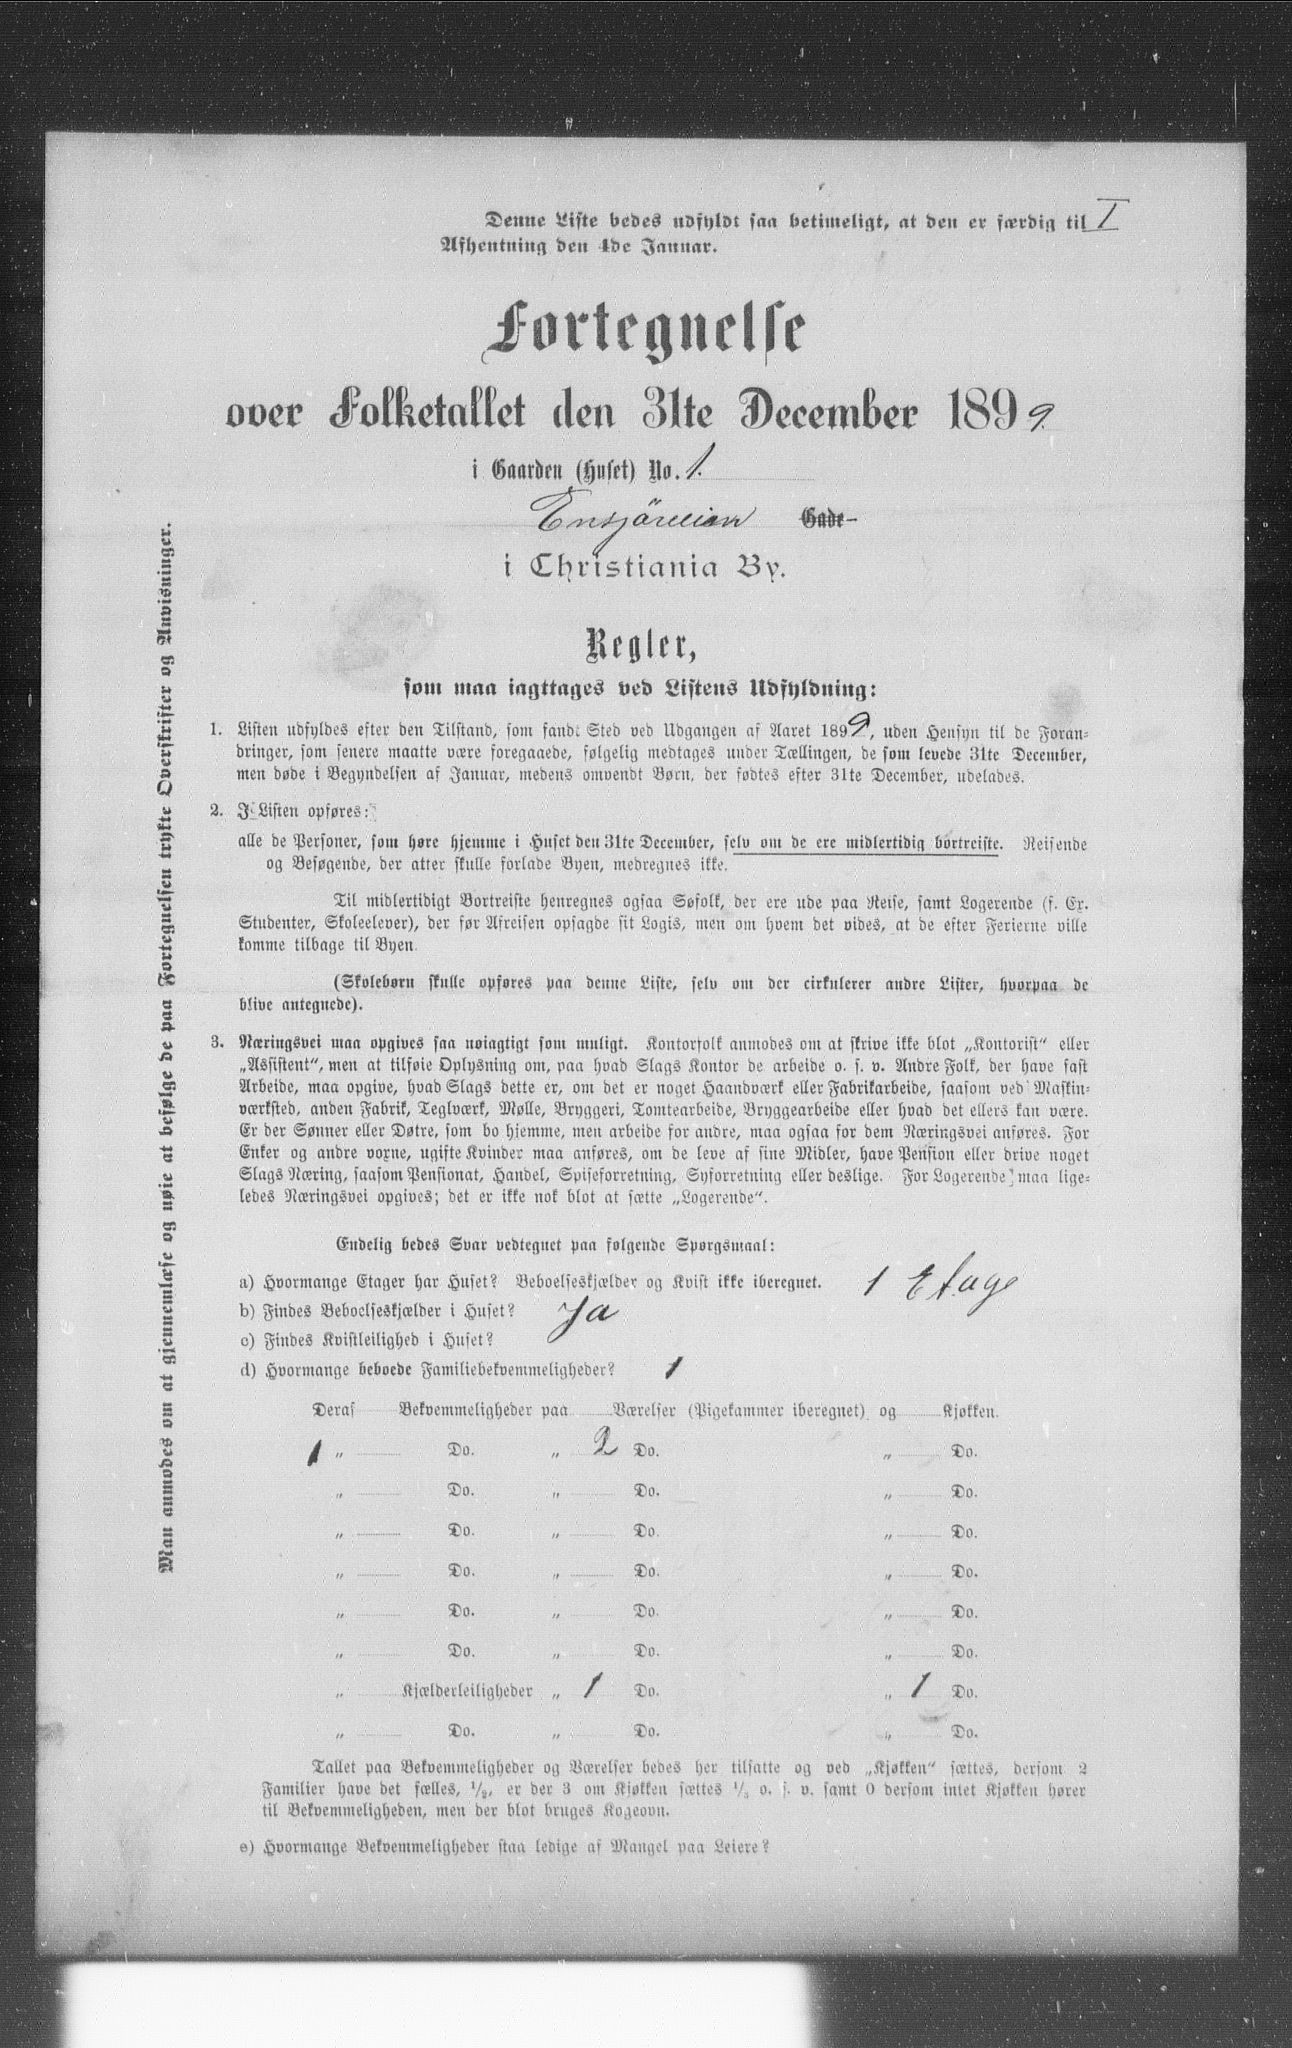 Denne Liste bedes udfyldt saa betimeligt, at den er færdig til I
Afhentning den 4de Januar.
Fortegnelse
over Folketallet den 31te December 1899.
i Gaarden (Huset) No. 1.
Ensjöveien Gade
i Christiania By.
Regler,
som maa iagttages ved Listens Udfyldning:
1. Listen udfyldes efter den Tilstand, som fandt Sted ved Udgangen af Aaret 1899, uden Hensyn til de Foran-
dringer, som senere maatte være foregaaede, følgelig medtages under Tællingen, de som levede 31te December,
men døde i Begyndelsen af Januar, medens omvendt Børn, der fødtes efter 31te December, udelades.
2. I Listen opføres:
alle de Personer, som høre hjemme i Huset den 31te December, selv om de ere midlertidig bortreiste. Reisende
og Besøgende, der atter skulle forlade Byen, medregnes ikke.
Til midlertidigt Bortreiste henregnes ogsaa Søfolk, der ere ude paa Reise, samt Logerende (f. Ex.
Studenter, Skoleelever), der før Afreisen opsagde sit Logis, men om hvem det vides, at de efter Ferierne ville
komme tilbage til Byen.
(Skolebørn skulle opføres paa denne Liste, selv om der cirkulerer andre Lister, hvorpaa de
blive antegnede).
3. Næringsvei maa opgives saa nøiagtigt som muligt. Kontorfolk anmodes om at skrive ikke blot „Kontorist" eller
„Assistent", men at tilføie Oplysning om, paa hvad Slags Kontor de arbeide o. s. v. Andre Folk, der have fast
Arbeide, maa opgive, hvad Slags dette er, om det er noget Haandværk eller Fabrikarbeide, saasom ved Maskin-
værksted, anden Fabrik, Teglværk, Mølle, Bryggeri, Tomtearbeide, Bryggearbeide eller hvad det ellers kan være.
Er der Sønner eller Døtre, som bo hjemme, men arbeide for andre, maa ogsaa for dem Næringsvei anføres. For
Enker og andre voxne, ugifte Kvinder maa anføres, om de leve af sine Midler, have Pension eller drive noget
Slags Næring, saasom Pensionat, Handel, Spiseforretning, Syforretning eller deslige. For Logerende maa lige-
ledes Næringsvei opgives; det er ikke nok blot at sætte „Logerende".
Endelig bedes Svar vedtegnet paa følgende Spørgsmaal:
a) Hvormange Etager har Huset? Beboelseskjælder og Kvist ikke iberegnet. 1 Etage
b) Findes Beboelseskjælder i Huset? Ja
c) Findes Kvistleilighed i Huset?
d) Hvormange beboede Familiebekvemmeligheder? 1
Deraf Bekvemmeligheder paa Værelser (Pigekammer iberegnet) og Kjøkken.
1 „ Do. „ 2 Do. „ Do.
„ Do. „ Do. „ Do.
„ Do. „ Do. „ Do.
„ Do. „ Do. „ Do.
„ Do. „ Do. „ Do.
„ Do. „ Do. „ Do.
„ Kjælderleiligheder „ 1 Do. „ 1 Do.
„ Do. „ Do. „ Do.
Tallet paa Bekvemmeligheder og Værelser bedes her tilsatte og ved „Kjøkken" sættes, dersom 2
Familier have det fælles, 1/2, er der 3 om Kjøkken sættes 1/3 o. s. v. samt 0 dersom intet Kjøkken hører
til Bekvemmeligheden, men der blot bruges Kogeovn.
e) Hvormange Bekvemmeligheder staa ledige af Mangel paa Leiere?
Man anmodes om at gjennemlæse og nøie at befølge de paa Fortegnelsen trykte Overskrifter og Anvisninger.